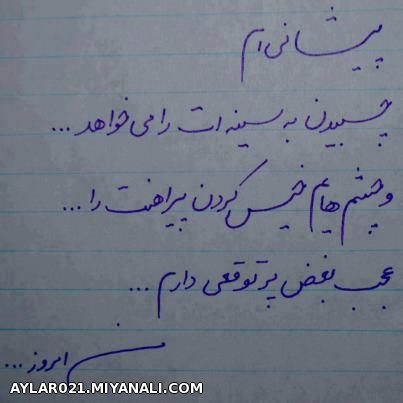 پیشانی ام
چسبیدن به سینه ات را می خواهد ...
و چشم هایم خیس کردن پیراهنت را ...
عجب بغض پر توقعی دارم ...
من امروز ...
AYLAR021.MIYANALI.COM